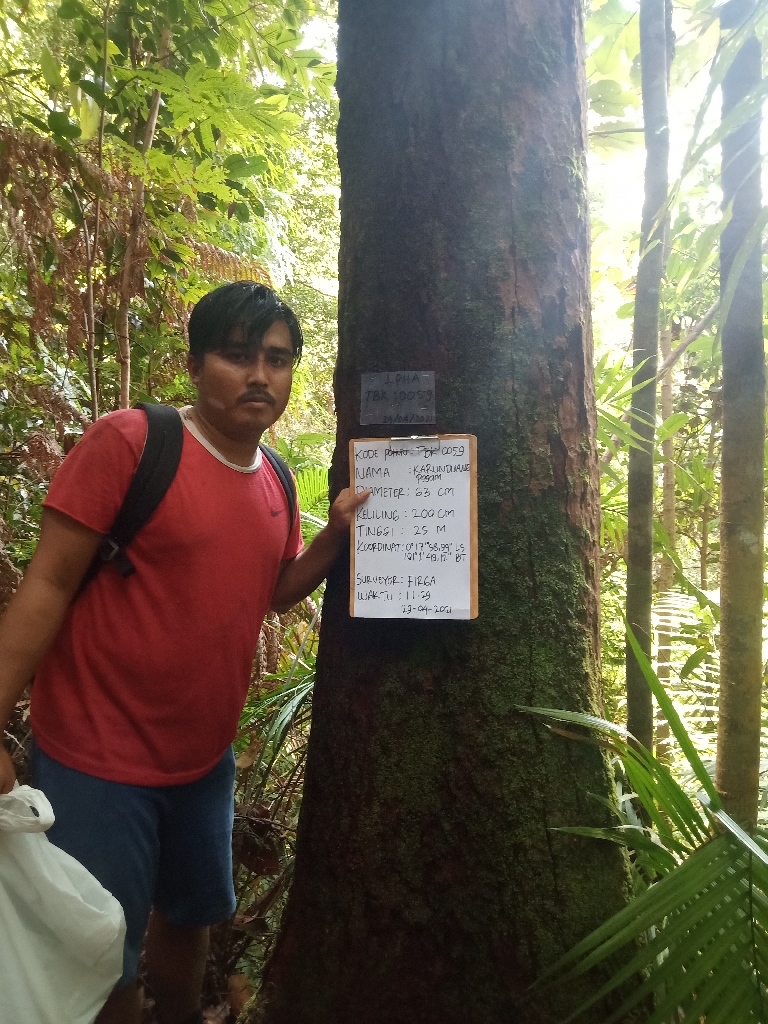 LPHA
TBK : 0059
29/04/2021
KODE pohon : TBK 0059
NAMA : KARUNDUANG
pogam
DIAMETER : 63 CM
KELILING : 200 CM
TINGGI : 25 M
KOORDINAT : 0°17'58,99" LS
121°1'49,17" BT
SURVEYOR : FIRGA
WAKTU : 11:29
29-04-2021